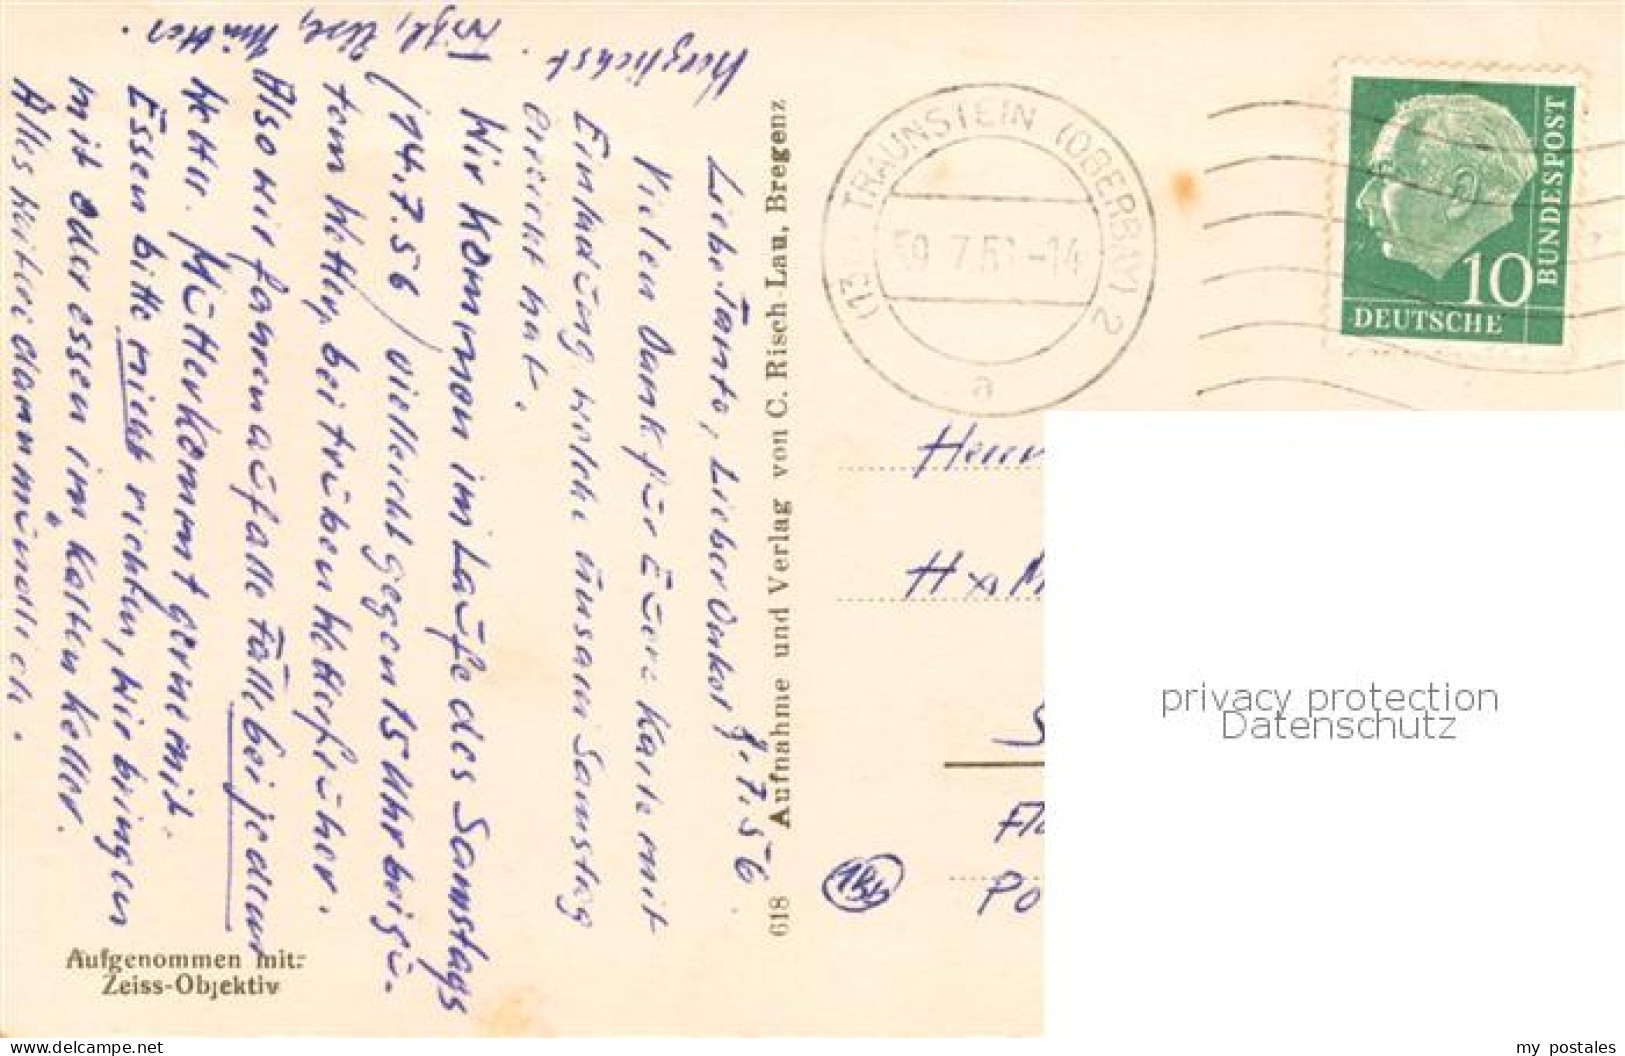 9.7.56
Liebe Tante, Lieber Onkel!
Vielen Dank für Eure Karte mit
Einladung welche unsam Samstag
erreicht hat.
Wir kommen im Laufe des Samstags
(14.7.56) vielleicht gegen 15 Uhr bei gu-
tem Wetter, bei trüben Wetter früher.
Also wir fahren auf alle Fälle bei jedem
Wetter. Mutter kommt gerne mit.
Essen bitte nicht richten, wir bringen
mit oder essen im kalten Keller.
Alles weitere dann mündlich.
Herzlichst.
Lise, Mutter.
618 Aufnahme und Verlag von C. Risch-Lau, Bregenz
Aufgenommen mit:
Zeiss-Objektiv
TRAUNSTEIN (OBERBAY) 2
7.5 -14
a
DEUTSCHE
BUNDESPOST
10
Herrn
13b
privacy protection
Datenschutz
www.delcampe.net
my postales